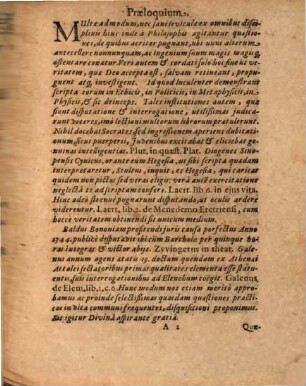 Præloquium.
Multæ admodum, nec janeis viculæ ex omnibus disci-
plinis hinc inde à Philosophis agitantur quæstio-
nes, de quibus acriter pugnant, ubi unus alterum
antecellere nonnunquam, ac ingenium suum magis magisq;
ostentare conatur. Veri autem & cordati sulo hoc sinu ut ve-
ritatem, qua Dea acceptasi, salvam retineant, propu-
gnent atq; investigent. Id quod luculenter demonstrant
scripta eorum in Ethicis, in Politicis, in Metaphysicis, in
Physicis, & sic deinceps. Tales institutiones autem, quæ
siunt disputatione & interrogatione, utilissimas judica-
runt veteres, imò lectioni multarum librorum prætulerunt.
Nihil docebat Socrates: sed ingressionem aperiens dubitatio-
num, sicut puerperis, Juvenibus excitabat & eliciebat ge-
nuinas intelligentias. Plut. in quæst. Plat. Diogenes Sino-
pensis Cynicus, orante eum Hegesia, ut sibi scripta quædam
interpretaretur, Stolem, inquit, es Hegesia, qui caricas
quidem non pictas sed veras eligis: verâ autem exercitatione
neglectâ te ad scriptam confers. Laert. lib. 6. in ejus vita.
Hinc adeò strenuè pugnarunt disputando, ut oculis ardere
viderentur. Laert. lib. 2. de Menedemo Eretriensi, cum
hocce veritatem obtinendi sit unicum medium.
Baldus Bononiam proficiscendi juris causâ profectus Anno
1344. publicè disputavit ibi cum Bartholo per quinque
horas integras & victor abiit. Zvvingerus in theat. Gale-
nus annum agens ætatis 19. doctum quendam ex Athenai
Attalei sectatoribus primas qualitates elementa esse statu-
entem, suis interrogationibus ad Elenchum coegit. Galenus
de Elem, lib. 1. c. 6. Hunc modum nos etiam meritò appro-
bamus ac proinde selectissimas quasdam quæstiones practi-
cas in vita communi frequentes, disquisitioni proponimus.
Sic igitur Divinâ aspirante gratiâ.
A 2 Quæ-